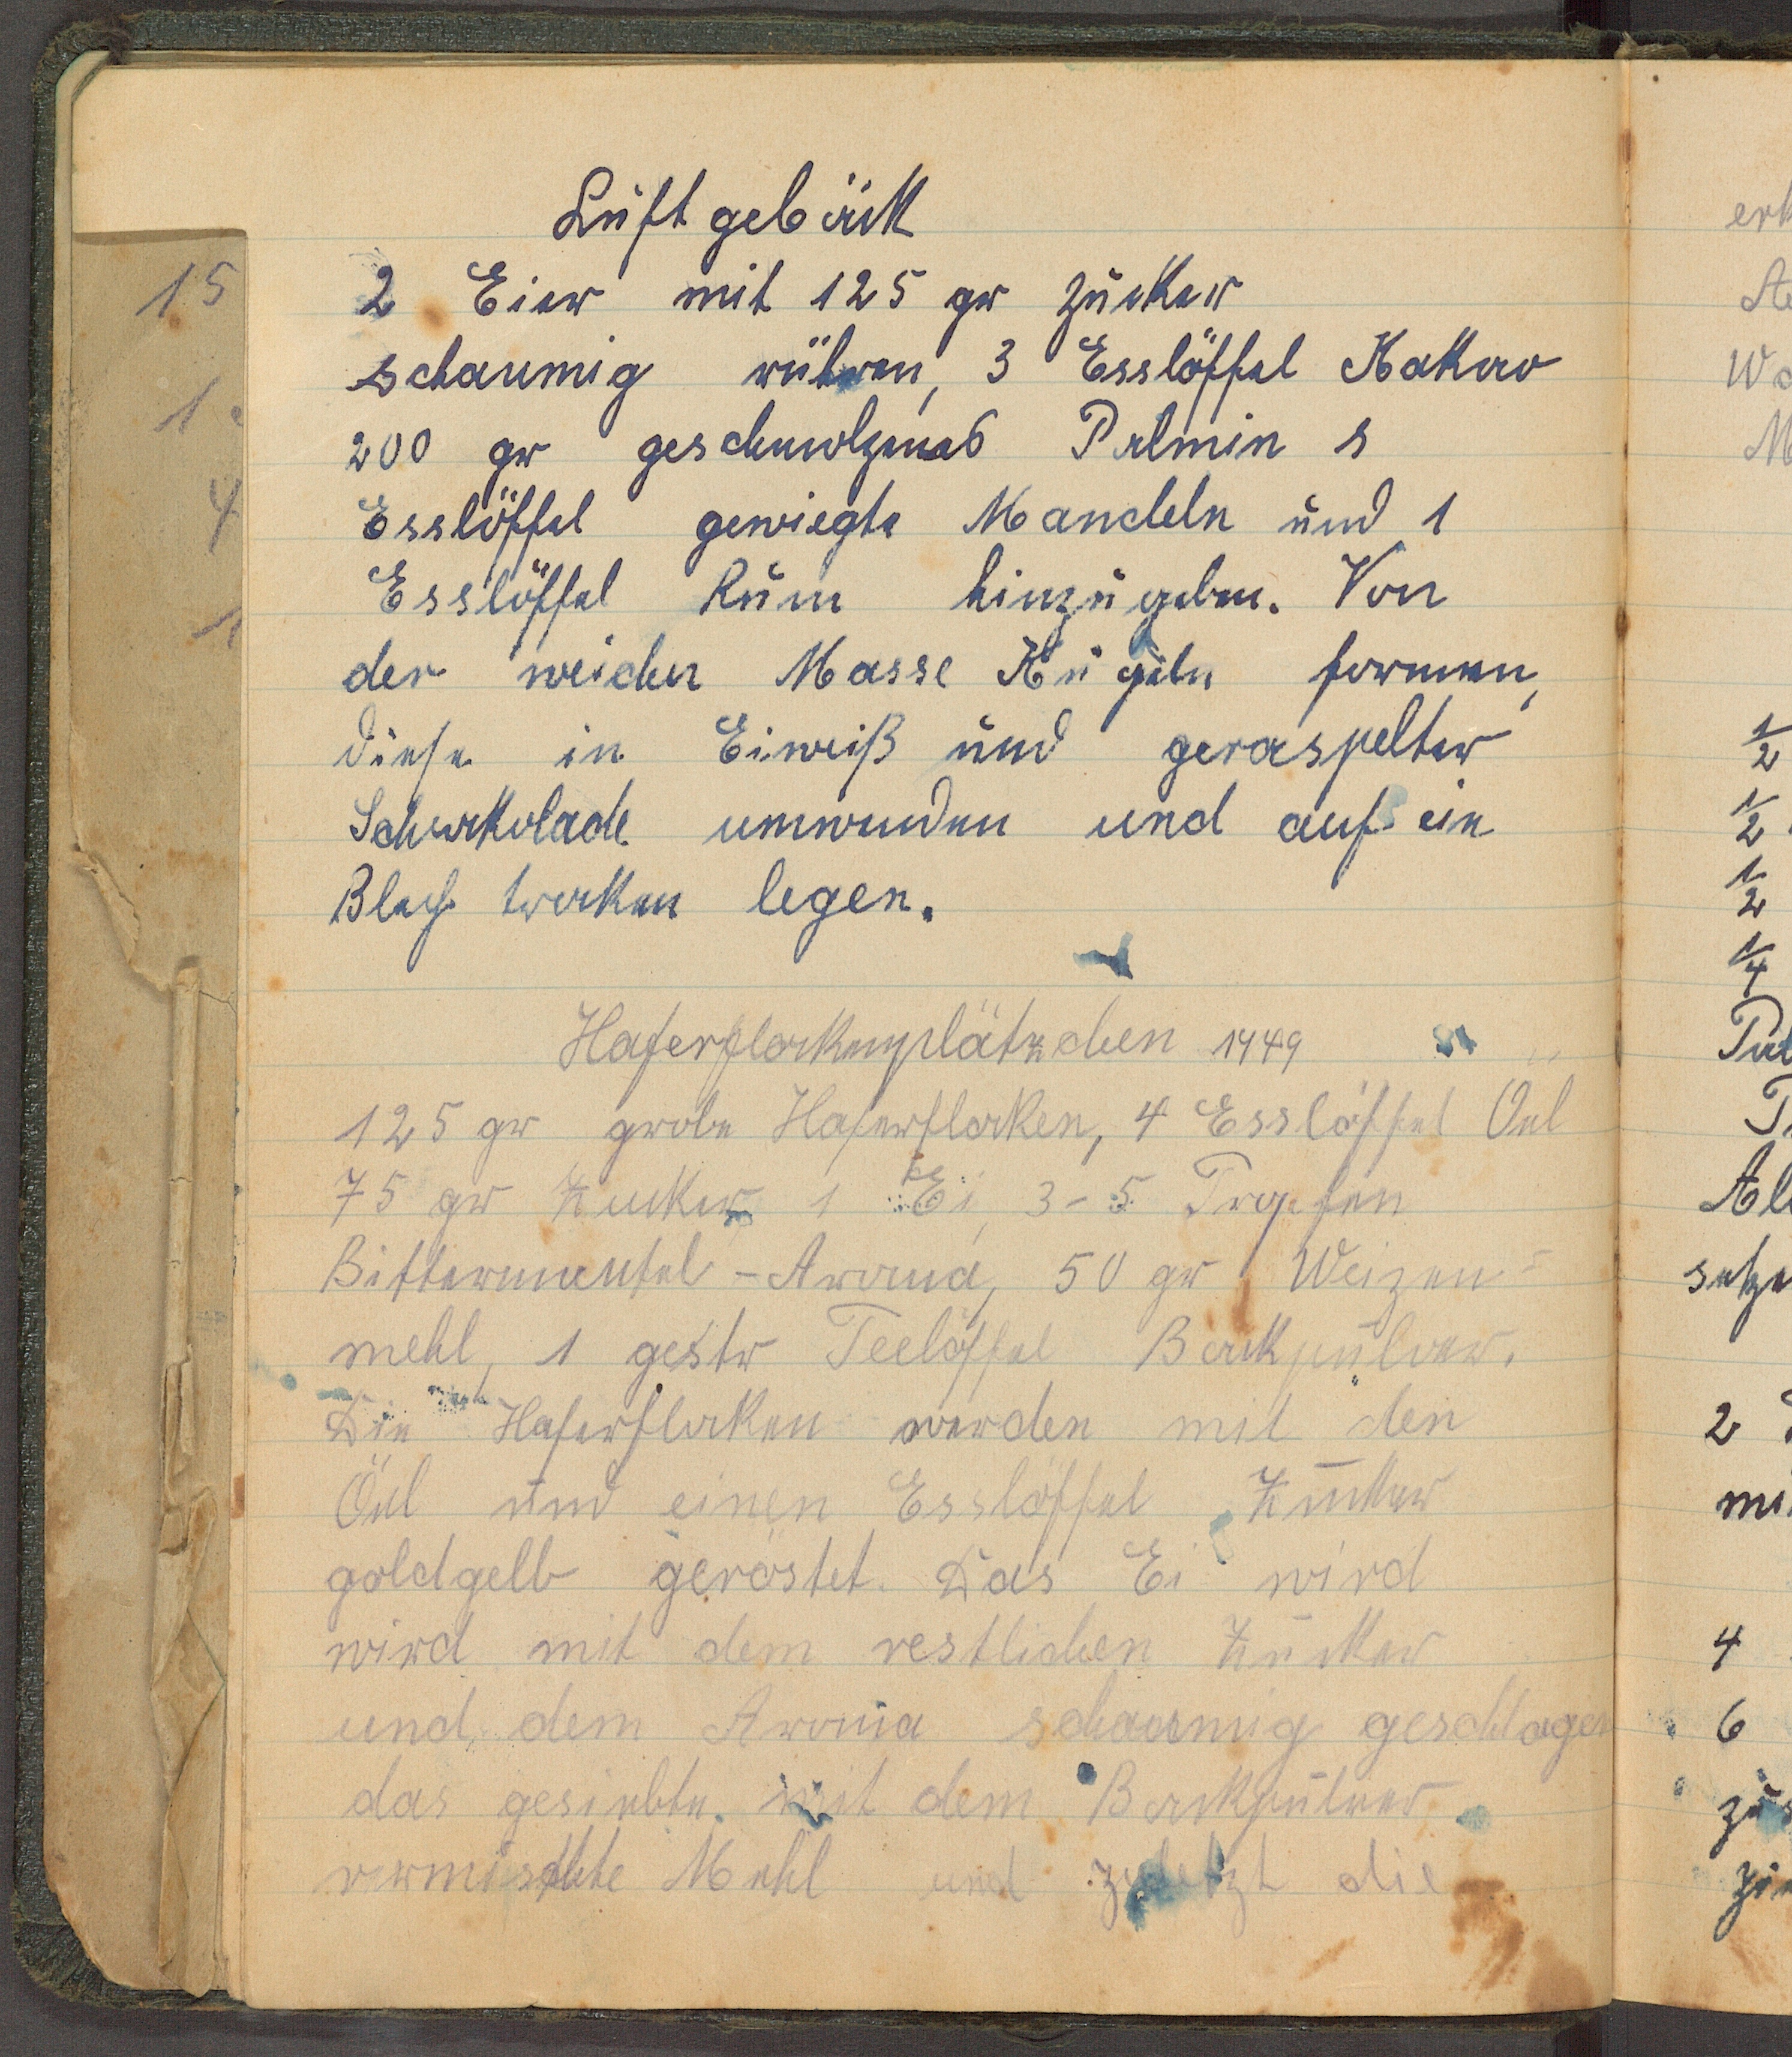 Luftgebäck
2 Eier mit 125 gr Zucker
schaumig rühren, 3 Esslöffel Kakao
200 gr geschmolzenes Palmin s
Esslöffel gewiegte Mandeln und 1
Esslöffel Rum hinzugeben. Von
der weichen Masse Kugeln formen,
diese in Eiweiß und geraspelter
Schokolade umwenden und auf ein
Blech trocken legen.
Haferflockenplätzchen 1949
125 gr grobe Haferflocken, 4 Esslöffel Oel
75 gr Zucker 1 Ei, 3-5 Tropfen
Bittermantel-Aroma, 50 gr Weizen=
mehl, 1 gestr Teelöffel Backpulver.
Die Haferflocken werden mit den
Öel und einen Esslöffel Zucker
goldgelb geröstet. Das Ei wird
wird mit dem restlichen Zucker
und dem Aroma schaumig geschlagen
das gesiebte mit dem Backpulver
vermischte Mehl und zuletzt die
15
1
4
1
erk
Wa
M
1/2
1/2
1/2
1/4
setze
2
4
6